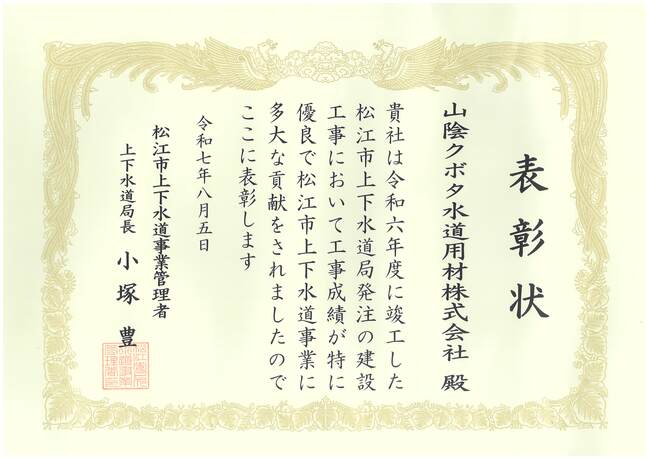 表彰状
山陰クボタ水道用材株式会社 殿
貴社は令和六年度に竣工した
松江市上下水道局発注の建設
工事において工事成績が特に
優良で松江市上下水道事業に
多大な貢献をされましたので
ここに表彰します
令和七年八月五日
松江市上下水道事業管理者
上下水道局長 小塚 豊